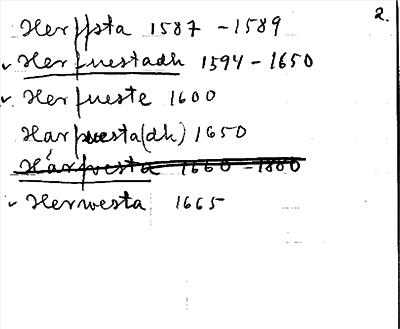 2.
Herffsta 1587 - 1589
Herfuestadh 1594 - 1650
Herfueste 1600
Harfuesta(dh) 1650
Härfvesta 1660 - 1800
Herwesta 1665